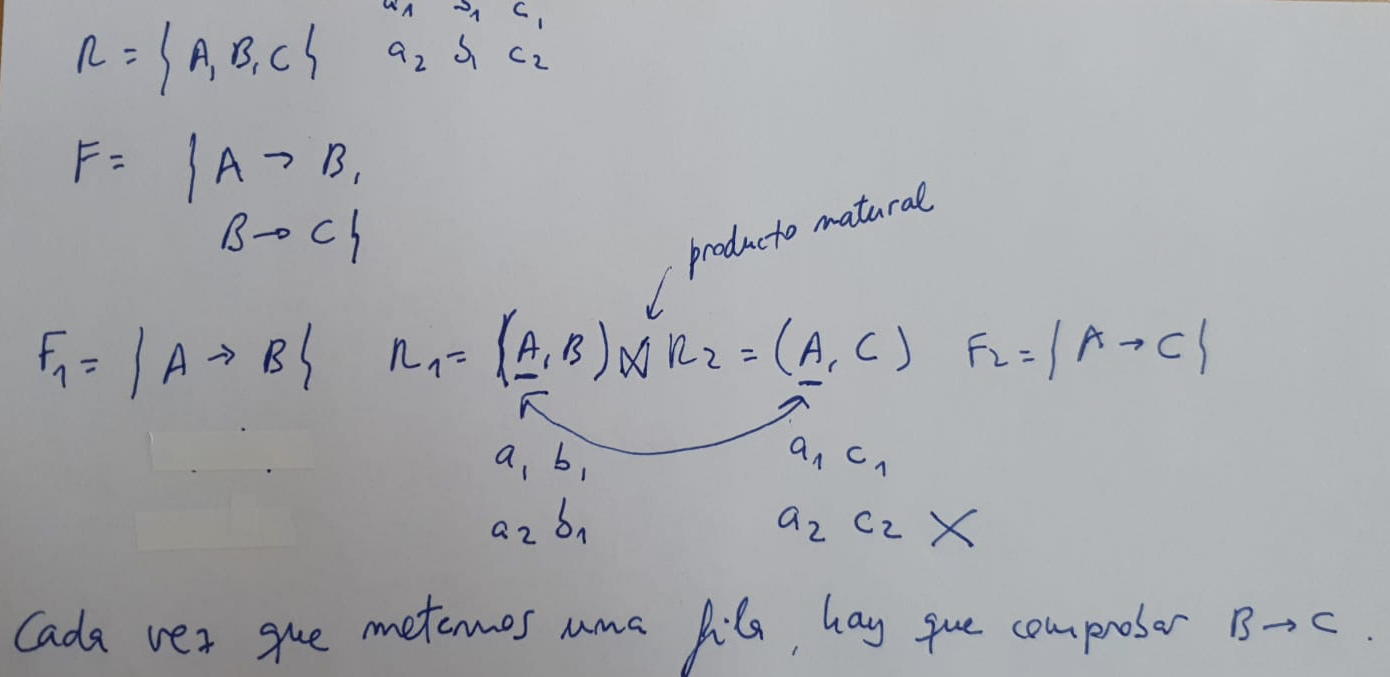 a1 b1 c1
R = { A, B, C } a2 b1 c2
F = { A → B,
B → C }
producto natural
F1 = { A → B } R1 = (A, B) ⋈ R2 = (A, C) F2 = { A → C }
a1 b1 a1 c1
a2 b1 a2 c2 X
Cada vez que metemos una fila, hay que comprobar B → C.